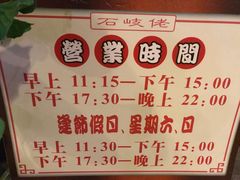 石岐佬
營業時間
早上 11:15—下午 15:00
下午 17:30—晚上 22:00
逢節假日、星期六、日
早上 11:30—下午 15:00
下午 17:30—晚上 22:00